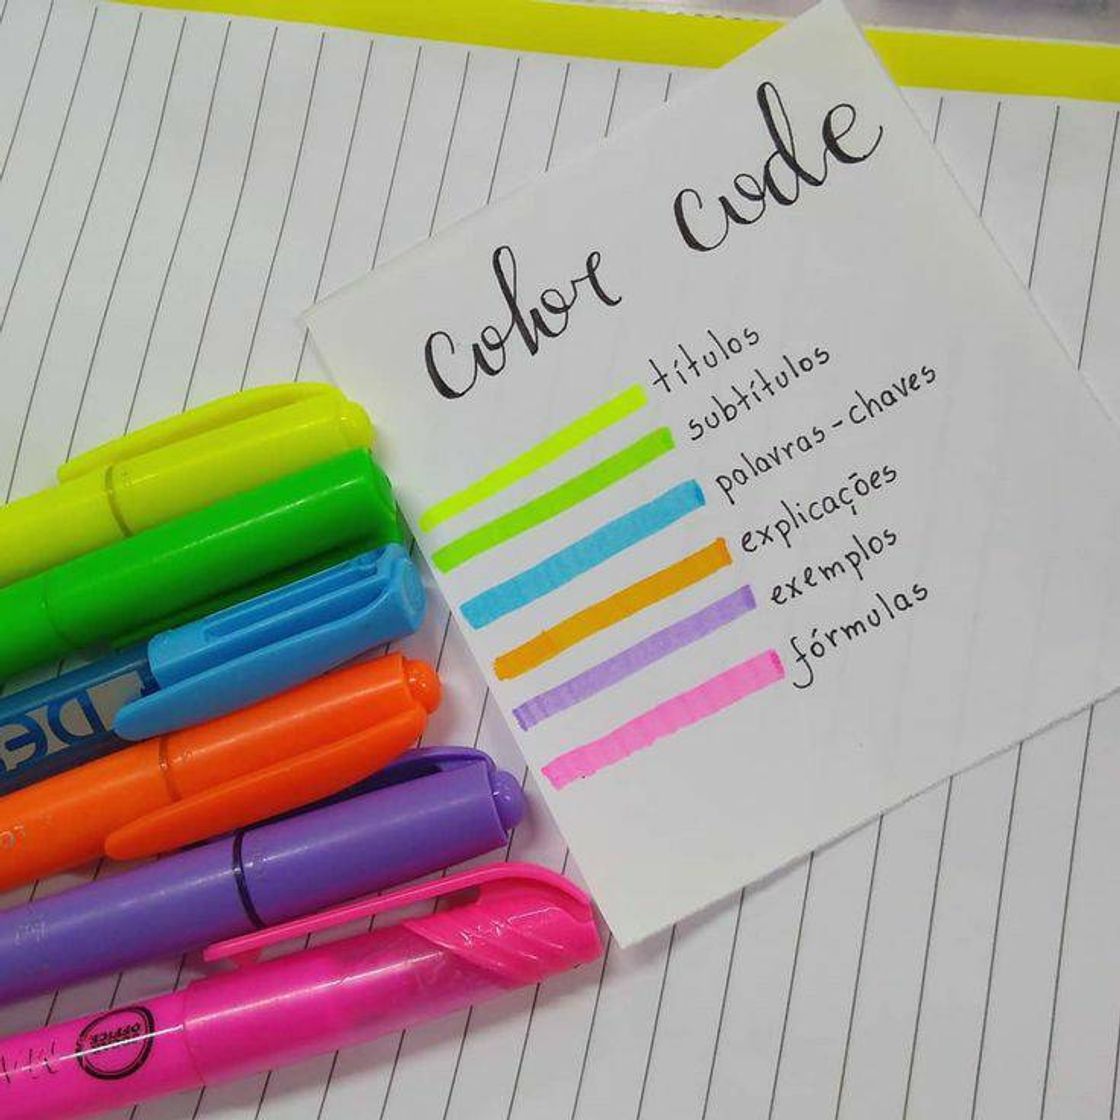 Color Code
títulos
subtítulos
palavras-chaves
explicações
exemplos
fórmulas
OFFICE